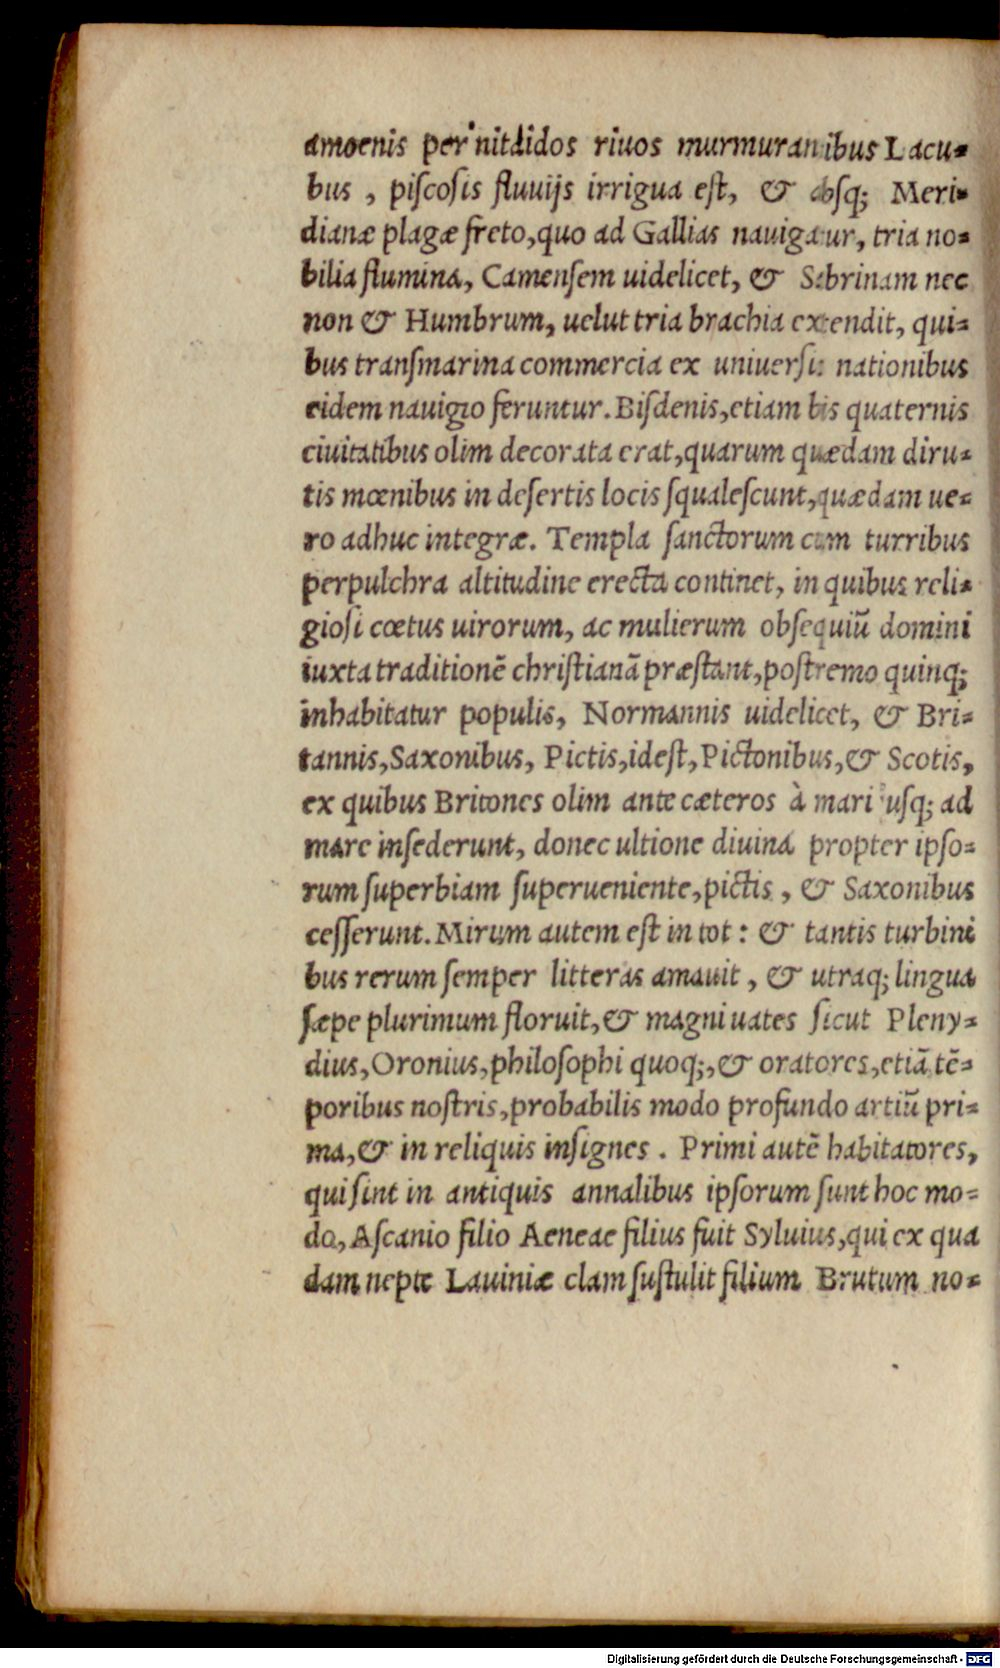 amoenis per nitdidos riuos murmurantibus Lacu-
bus, piſcoſis fluuijs irrigua eſt, & abſq; Meri-
dianæ plagæ freto, quo ad Gallias nauigatur, tria no-
bilia flumina, Camenſem uidelicet, & Sabrinam nec
non & Humbrum, uelut tria brachia extendit, qui-
bus tranſmarina commercia ex univerſis nationibus
eidem nauigio feruntur. Biſdenis, etiam bis quaternis
ciuitatibus olim decorata erat, quarum quædam diru-
tis mœnibus in deſertis locis ſqualeſcunt, quædam ue-
ro adhuc integræ. Templa ſanctorum cum turribus
perpulchra altitudine erecta continet, in quibus reli-
gioſi cœtus uirorum, ac mulierum obſequiũ domini
iuxta traditionẽ chriſtianã præſtant, poſtremo quinq;
inhabitatur populis, Normannis uidelicet, & Bri-
tannis, Saxonibus, Pictis, ideſt, Pictonibus, & Scotis,
ex quibus Britones olim ante cæteros à mari uſq; ad
mare inſederunt, donec ultione diuina propter ipſo-
rum ſuperbiam ſuperueniente, pictis, & Saxonibus
ceſſerunt. Mirum autem eſt in tot: & tantis turbini
bus rerum ſemper litteras amauit, & utraq; lingua
ſæpe plurimum floruit, & magni uates ſicut Pleny-
dius, Oronius, philoſophi quoq;, & oratores, etiã tẽ-
poribus noſtris, probabilis modo profundo artiũ pri-
ma, & in reliquis inſignes. Primi autẽ habitatores,
qui ſint in antiquis annalibus ipſorum ſunt hoc mo-
do, Aſcanio filio Aeneae filius fuit Sylvius, qui ex qua
dam nepte Lauiniæ clam ſuſtulit filium Brutum no-
Digitalisierung gefördert durch die Deutsche Forschungsgemeinschaft - DFG